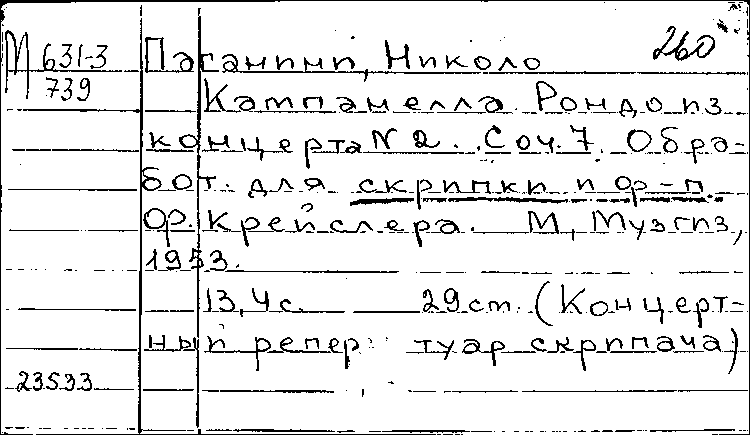 М 631-3 Паганини, Николо 260
739 Кампанелла. Рондо из
концерта N 2. Соч. 7. Обра-
бот. для скрипки и ф-п.
Ф. Крейслера. М, Музгиз,
1953.
13, 4 с. 29 cm. (Концерт-
ный репертуар скрипача)
23533